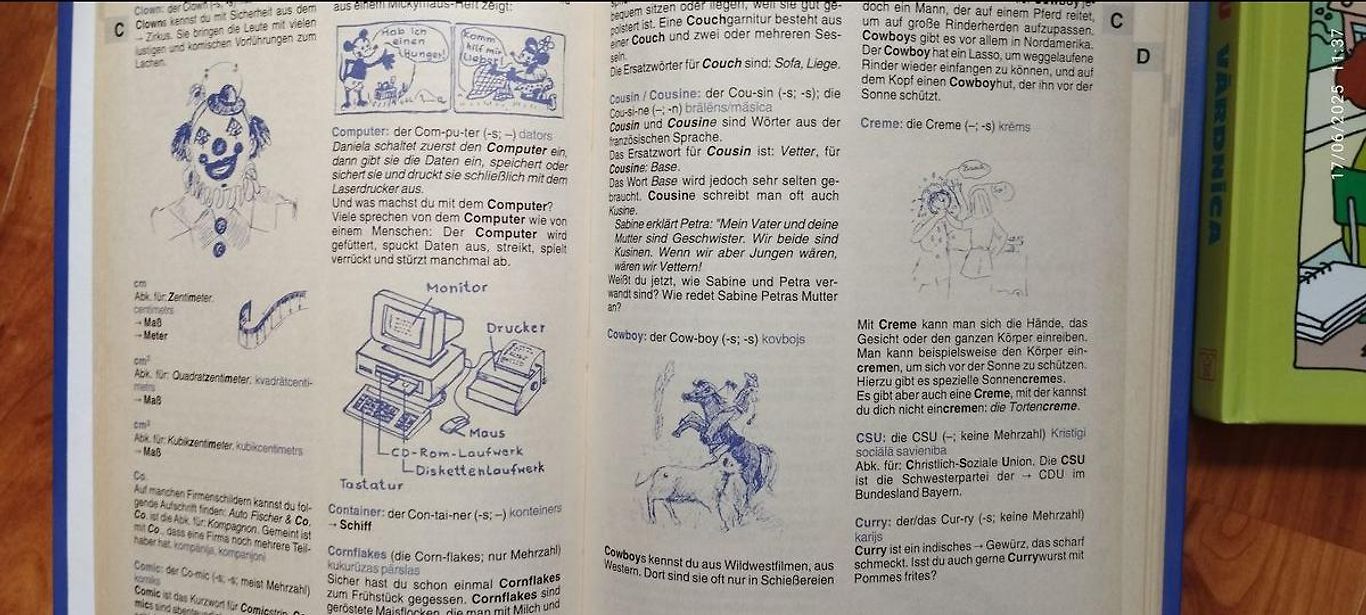 C
Clown: der Clown
Clowns kennst du mit Sicherheit aus dem
→ Zirkus. Sie bringen die Leute mit vielen
lustigen und komischen Vorführungen zum
Lachen.
cm
Abk. für: Zentimeter.
centimetrs
→ Maß
→ Meter
cm²
Abk. für: Quadratzentimeter. kvadrātcenti-
metrs
→ Maß
cm³
Abk. für: Kubikzentimeter. kubikcentimetrs
→ Maß
Co.
Auf manchen Firmenschildern kannst du fol-
gende Aufschrift finden: Auto Fischer & Co.
Co. ist die Abk. für: Kompagnon. Gemeint ist
mit Co., dass eine Firma noch mehrere Teil-
haber hat. kompānija, kompanjoni
Comic: der Co-mic (-s; -s; meist Mehrzahl)
komiks
Comic ist das Kurzwort für Comicstrip. Co-
mics sind
aus einem Mickymaus-Heft zeigt:
Hab ich
einen
Hunger!
Komm
hilf mir
Lieber!
Computer: der Com-pu-ter (-s; –) dators
Daniela schaltet zuerst den Computer ein,
dann gibt sie die Daten ein, speichert oder
sichert sie und druckt sie schließlich mit dem
Laserdrucker aus.
Und was machst du mit dem Computer?
Viele sprechen von dem Computer wie von
einem Menschen: Der Computer wird
gefüttert, spuckt Daten aus, streikt, spielt
verrückt und stürzt manchmal ab.
Monitor
Drucker
Maus
CD-Rom-Laufwerk
Diskettenlaufwerk
Tastatur
Container: der Con-tai-ner (-s; –) konteiners
→ Schiff
Cornflakes (die Corn-flakes; nur Mehrzahl)
kukurūzas pārslas
Sicher hast du schon einmal Cornflakes
zum Frühstück gegessen. Cornflakes sind
geröstete Maisflocken, die man mit Milch und
bequem sitzen oder liegen, weil sie gut ge-
polstert ist. Eine Couchgarnitur besteht aus
einer Couch und zwei oder mehreren Ses-
seln.
Die Ersatzwörter für Couch sind: Sofa, Liege.
Cousin / Cousine: der Cou-sin (-s; -s); die
Cou-si-ne (–; -n) brālēns/māsīca
Cousin und Cousine sind Wörter aus der
französischen Sprache.
Das Ersatzwort für Cousin ist: Vetter, für
Cousine: Base.
Das Wort Base wird jedoch sehr selten ge-
braucht. Cousine schreibt man oft auch
Kusine.
Sabine erklärt Petra: "Mein Vater und deine
Mutter sind Geschwister. Wir beide sind
Kusinen. Wenn wir aber Jungen wären,
wären wir Vettern!
Weißt du jetzt, wie Sabine und Petra ver-
wandt sind? Wie redet Sabine Petras Mutter
an?
Cowboy: der Cow-boy (-s; -s) kovbojs
Cowboys kennst du aus Wildwestfilmen, aus
Western. Dort sind sie oft nur in Schießereien
doch ein Mann, der auf einem Pferd reitet,
um auf große Rinderherden aufzupassen.
Cowboys gibt es vor allem in Nordamerika.
Der Cowboy hat ein Lasso, um weggelaufene
Rinder wieder einfangen zu können, und auf
dem Kopf einen Cowboyhut, der ihn vor der
Sonne schützt.
Creme: die Creme (–; -s) krēms
Mit Creme kann man sich die Hände, das
Gesicht oder den ganzen Körper einreiben.
Man kann beispielsweise den Körper ein-
cremen, um sich vor der Sonne zu schützen.
Hierzu gibt es spezielle Sonnencremes.
Es gibt aber auch eine Creme, mit der kannst
du dich nicht eincremen: die Tortencreme.
CSU: die CSU (–; keine Mehrzahl) Kristīgi
sociālā savienība
Abk. für: Christlich-Soziale Union. Die CSU
ist die Schwesterpartei der → CDU im
Bundesland Bayern.
Curry: der/das Cur-ry (-s; keine Mehrzahl)
karijs
Curry ist ein indisches → Gewürz, das scharf
schmeckt. Isst du auch gerne Currywurst mit
Pommes frites?
C
D
VĀRDNĪCA
17/06/2025 11:37